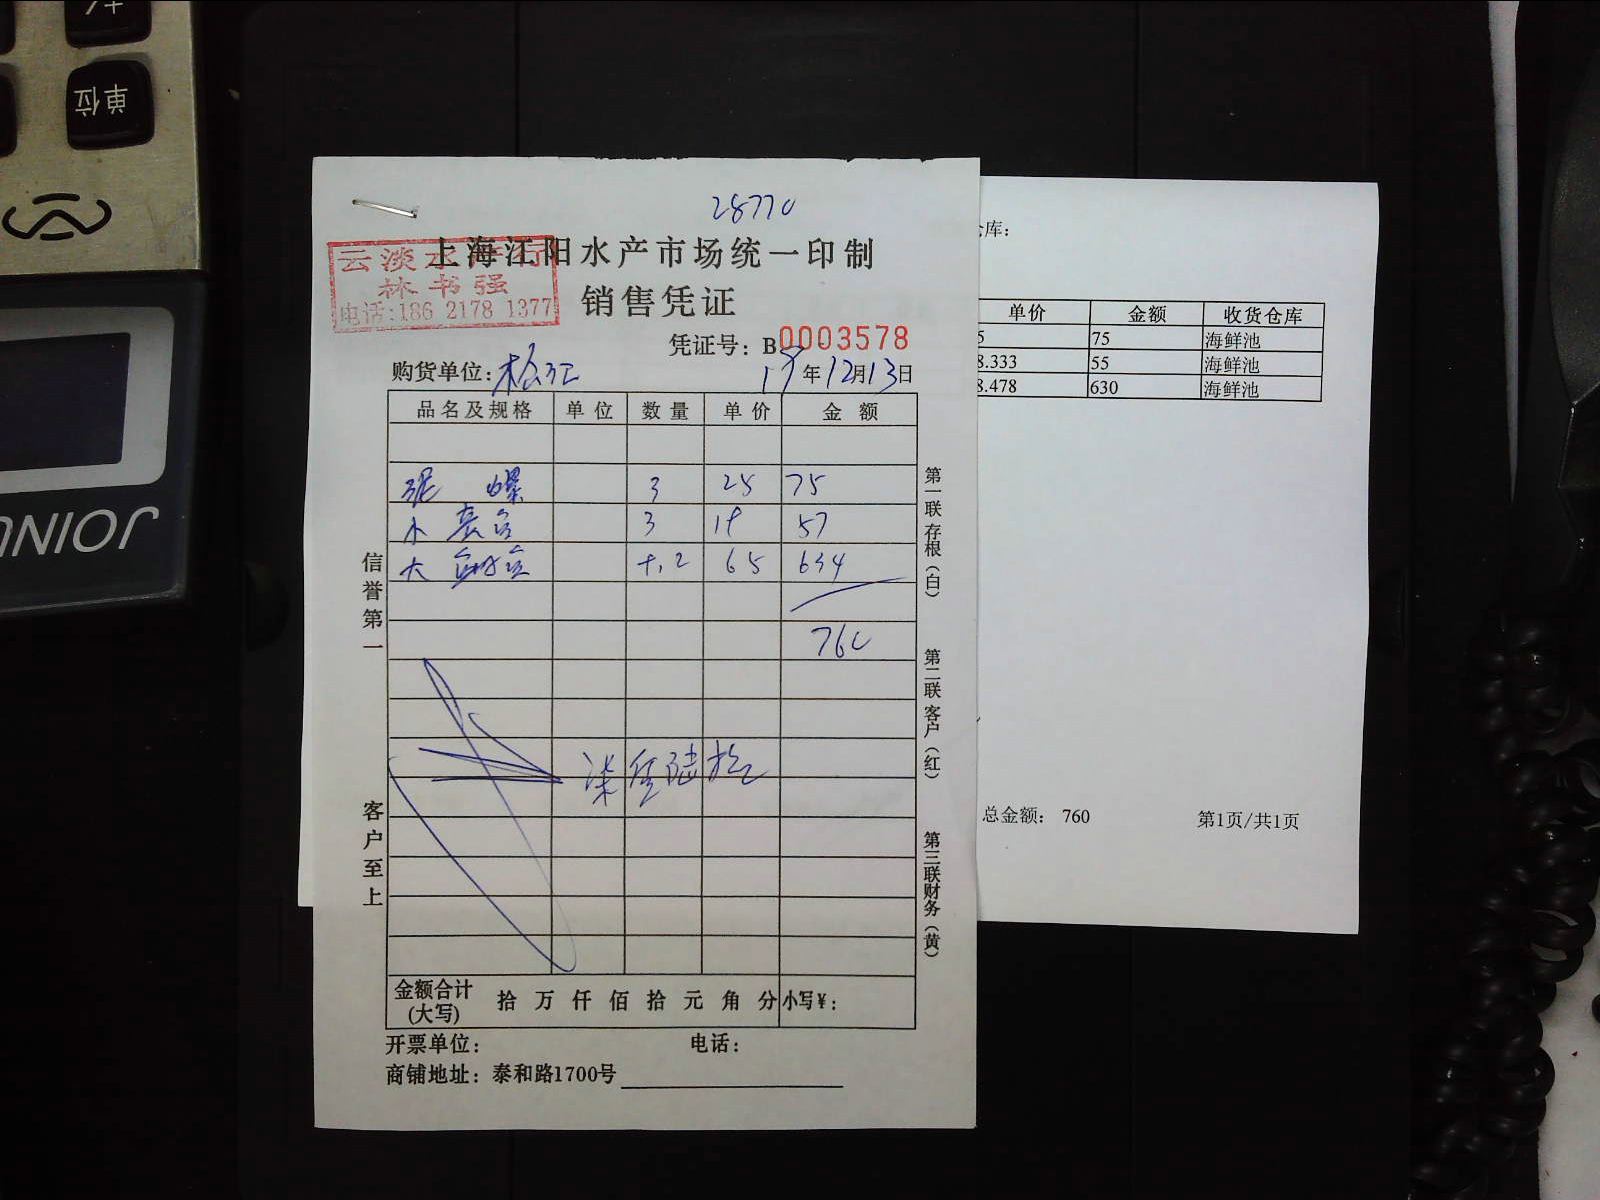 单位
JOINU
28770
上海江阳水产市场统一印制
云淡水产行
林书强
电话:186 2178 1377
销售凭证
凭证号: B0003578
购货单位:松江 19年12月13日
品名及规格 单位 数量 单价 金额
泥螺 3 25 75
小 3 19 57
大 65 634
760
柒佰陆拾
信誉第一
客户至上
第一联存根(白)
第二联客户(红)
第三联财务(黄)
金额合计(大写) 拾万仟佰拾元角分 小写¥:
开票单位: 电话:
商铺地址: 泰和路1700号
仓库:
单价 金额 收货仓库
5 75 海鲜池
8.333 55 海鲜池
8.478 630 海鲜池
总金额: 760 第1页/共1页